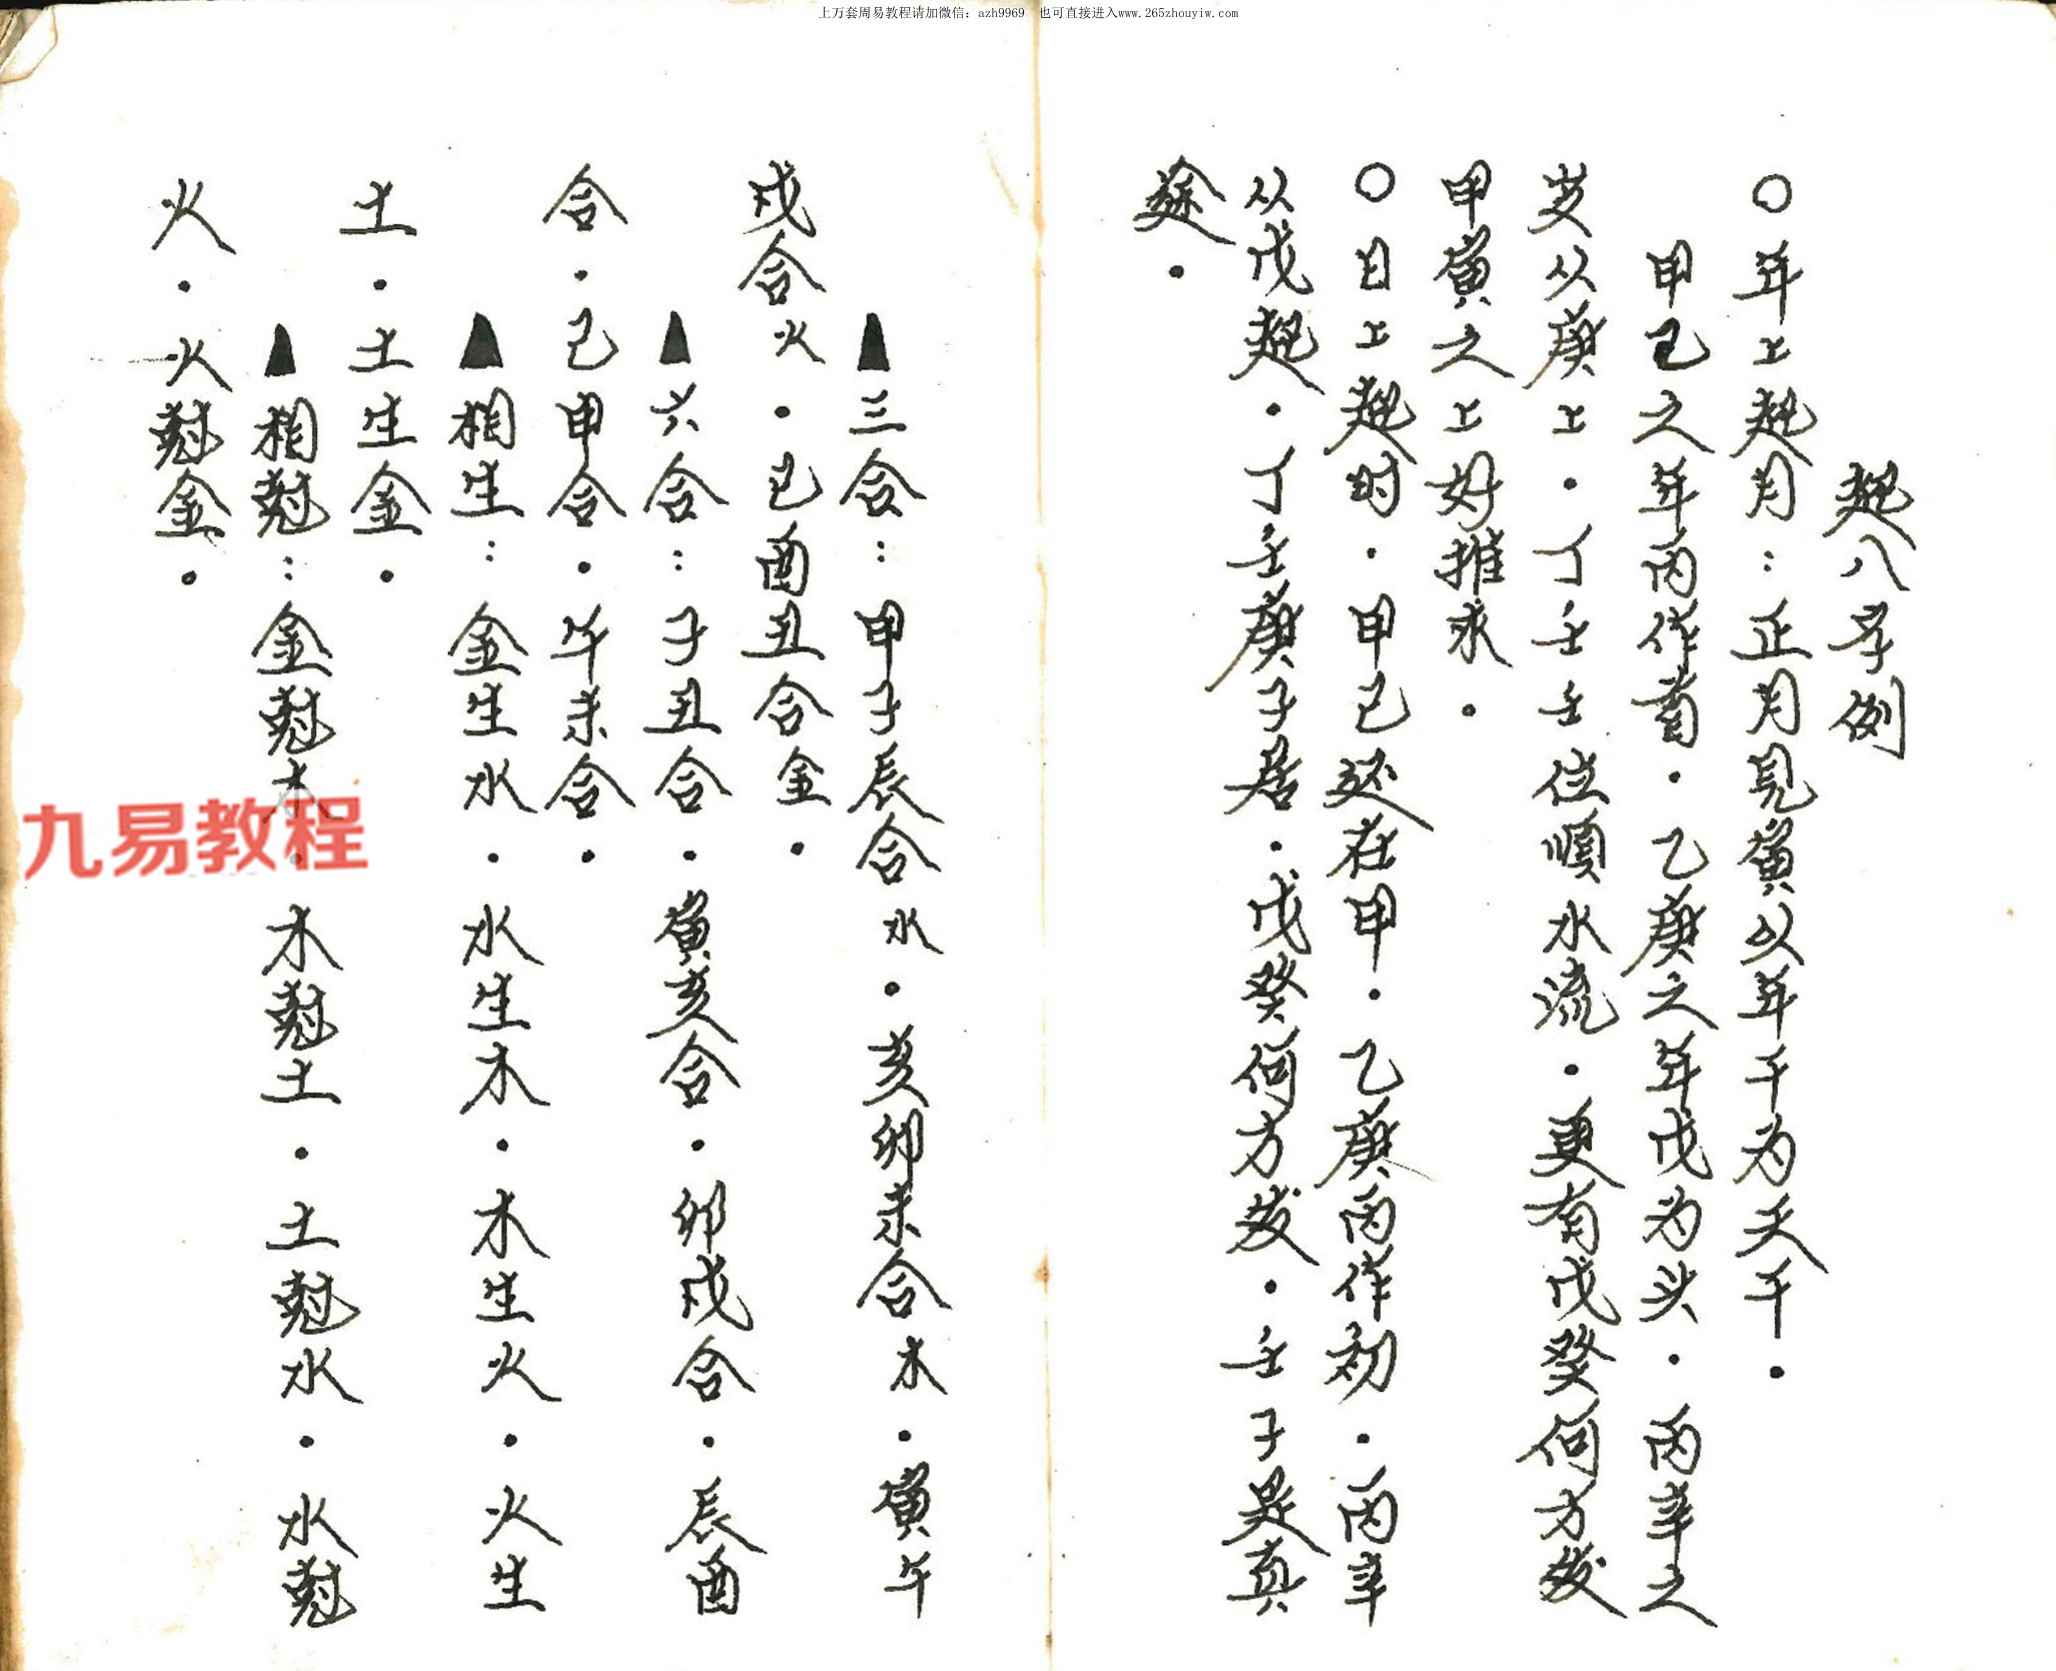 上万套周易教程请加微信：azh9969　也可直接进入www.265zhouyiw.com
起八字例
〇年上起月：正月見寅以年干为天干．
甲己之年丙作首．乙庚之年戊为头．丙辛之
岁从庚上．丁壬壬位順水流．更有戊癸何方发
甲寅之上好推求．
〇日上起时．甲己还在甲．乙庚丙作初．丙辛
从戊起．丁壬庚子居．戊癸何方发．壬子是真
途．
▲三合：甲子辰合水．亥卯未合木．寅午
戍合火．巳酉丑合金．
▲六合：子丑合．寅亥合．卯戍合．辰酉
合．己申合．午未合．
▲相生：金生水．水生木．木生火．火生
土．土生金．
▲相尅：金尅木．木尅土．土尅水．水尅
火．火尅金．
九易教程